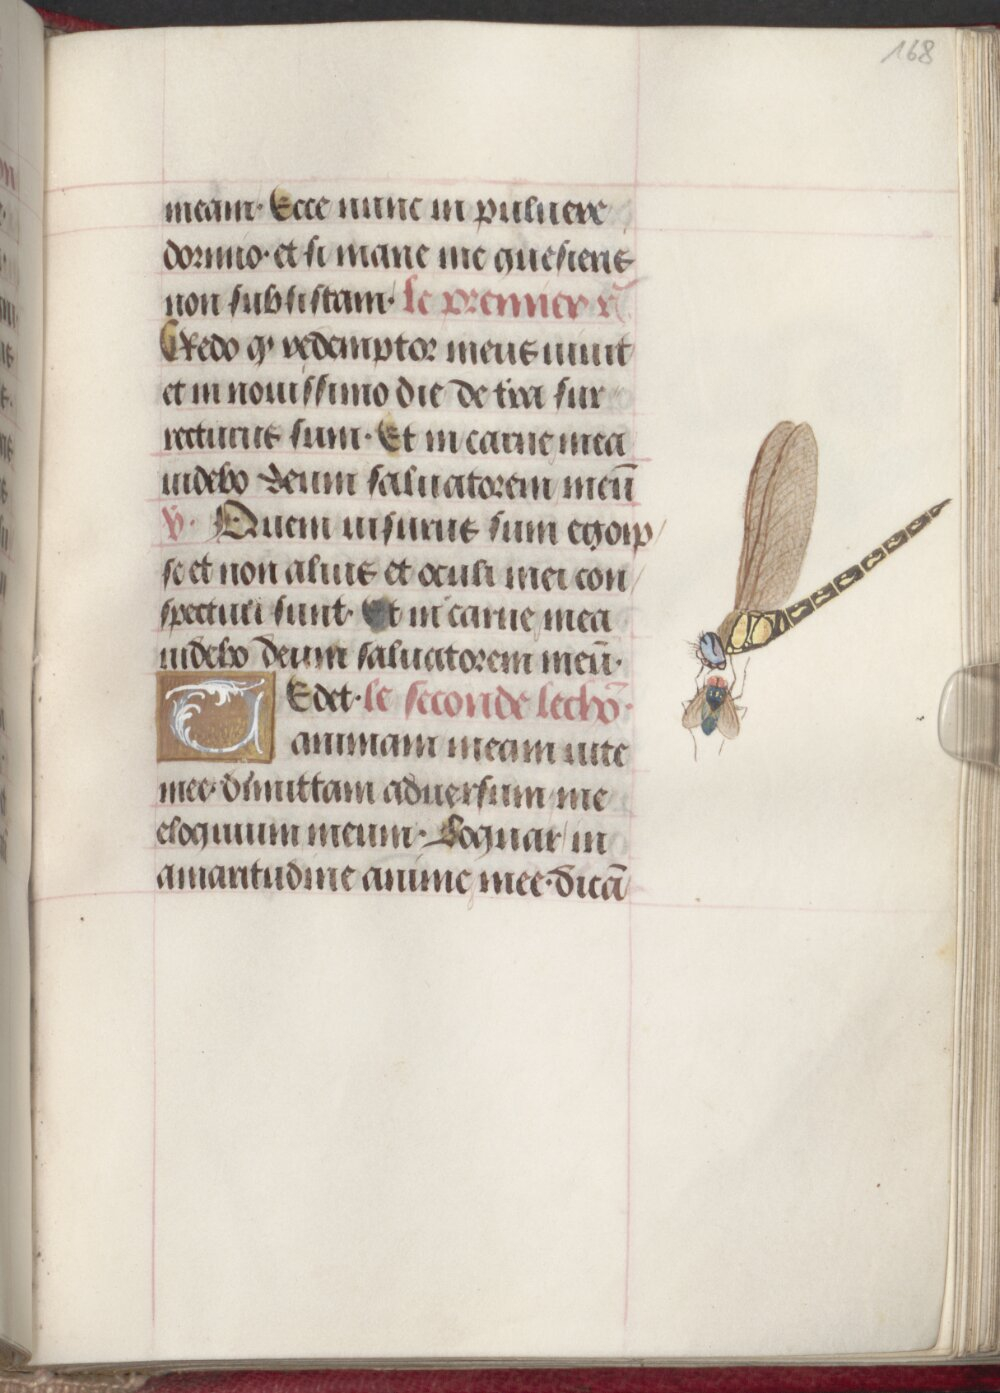 168
meam· Ecce nunc in puluere
dormio· et si mane me quesieris
non subsistam· le premier r̃
Credo qꝫ redemptor meus uiuit
et in nouissimo die de tr̃a sur
recturus sum· Et in carne mea
uidebo deum saluatorem meū
v̄· Quem uisurus sum ego ip/
se et non alius et oculi mei con/
specturi sunt· Et in carne mea
uidebo deum saluatorem meū·
TEdet· le seconde lechō·
animam meam uite
mee· dimittam aduersum me
eloquium meum· Loquar in
amaritudine anime mee· dicā